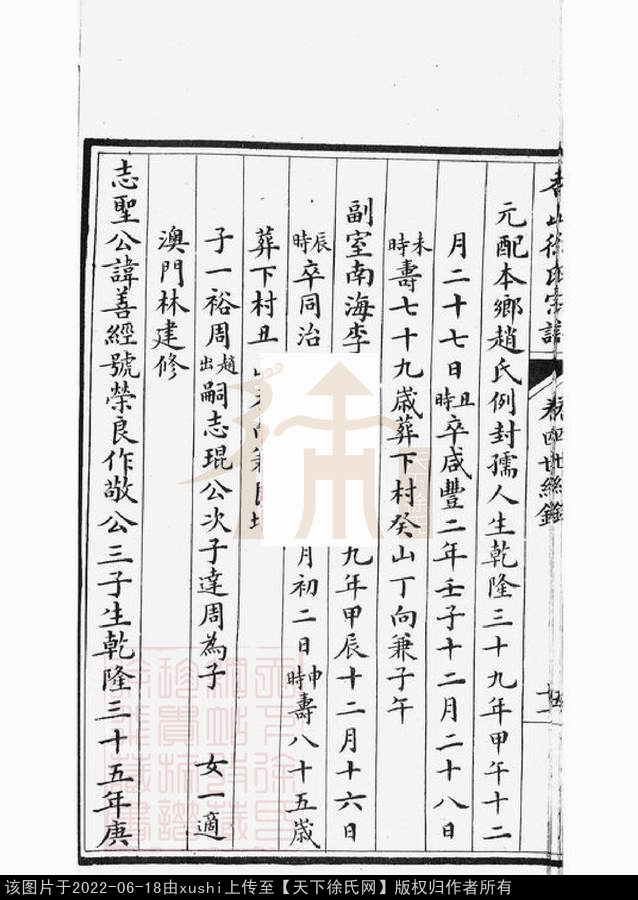 元配本鄉趙氏例封孺人生乾隆三十九年甲午十二
月二十七日丑時卒咸豐二年壬子十二月二十八日
未時壽七十九歲葬下村癸山丁向兼子午
副室南海李
九年甲辰十二月十六日
辰時卒同治
月初二日申時壽八十五歲
葬下村丑
子一裕周趙出嗣志琨公次子達周為子 女一適
澳門林建修
志聖公諱善經號榮良作敬公三子生乾隆三十五年庚
该图片于2022-06-18由xushi上传至【天下徐氏网】版权归作者所有